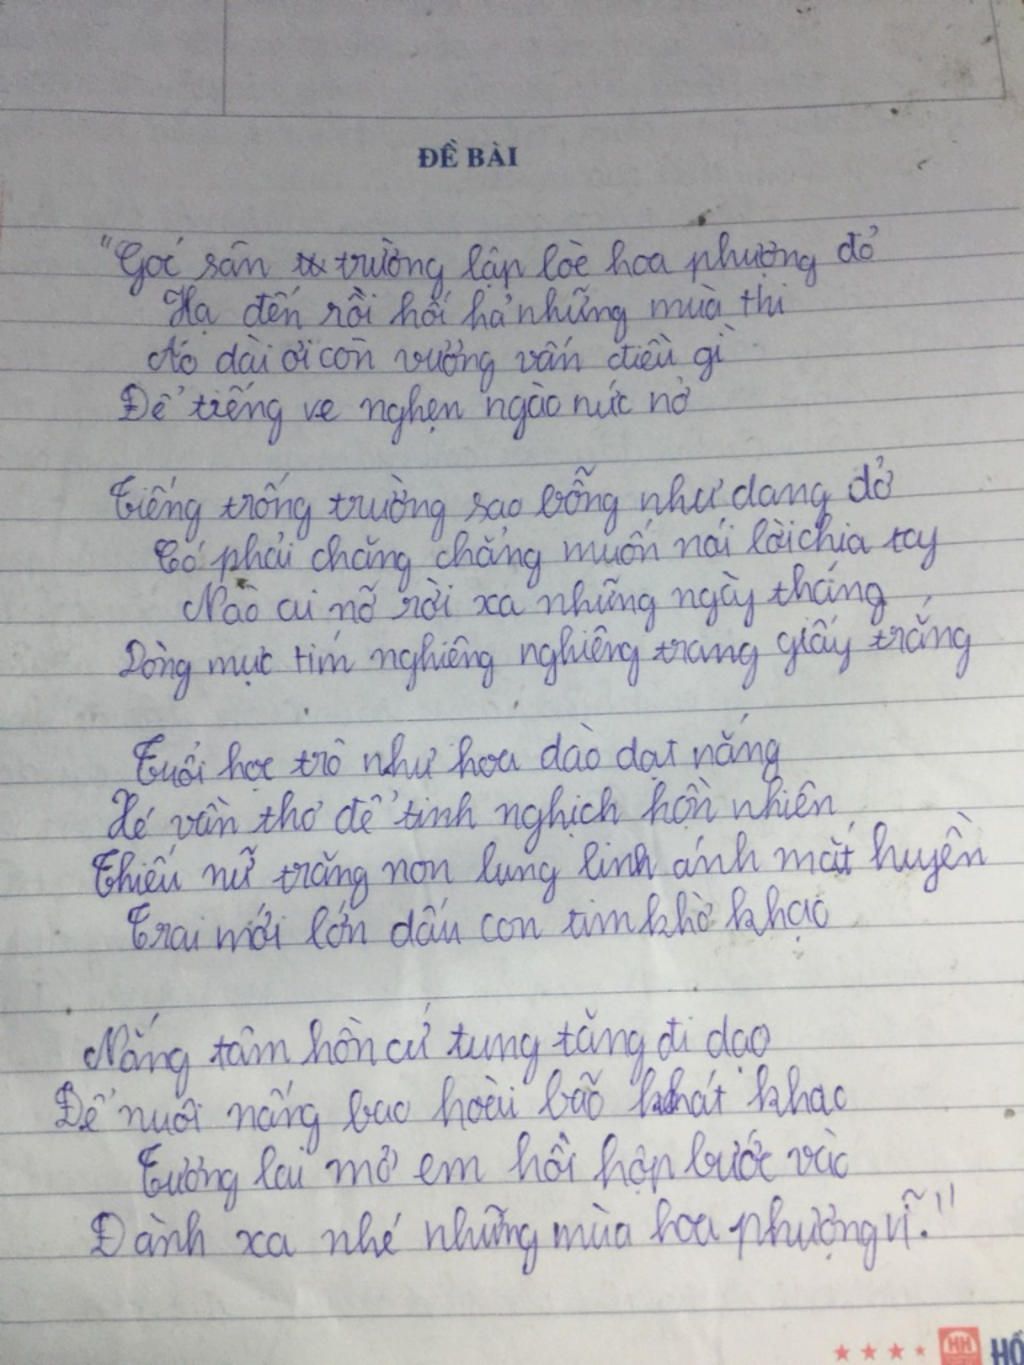 ĐỀ BÀI
"Góc sân trường lập lòe hoa phượng đỏ
Hạ đến rồi hối hả những mùa thi
Áo dài ơi còn vướng vấn điều gì
Để tiếng ve nghẹn ngào nức nở
Tiếng trống trường sao bỗng như dang dở
Có phải chăng chẳng muốn nói lời chia tay
Nào ai nỡ rời xa những ngày tháng
Dòng mực tím nghiêng nghiêng trang giấy trắng
Tuổi học trò như hoa dào dạt nắng
Xé vần thơ để tinh nghịch hồn nhiên
Thiếu nữ trăng non lung linh ánh mắt huyền
Trai mới lớn dấu con tim khờ khạo
Nắng tâm hồn cứ tung tăng đi dạo
Để nuôi nấng bao hoài bão khát khao
Tương lai mở em hồi hộp bước vào
Đành xa nhé những mùa hoa phượng vĩ."
HỒ